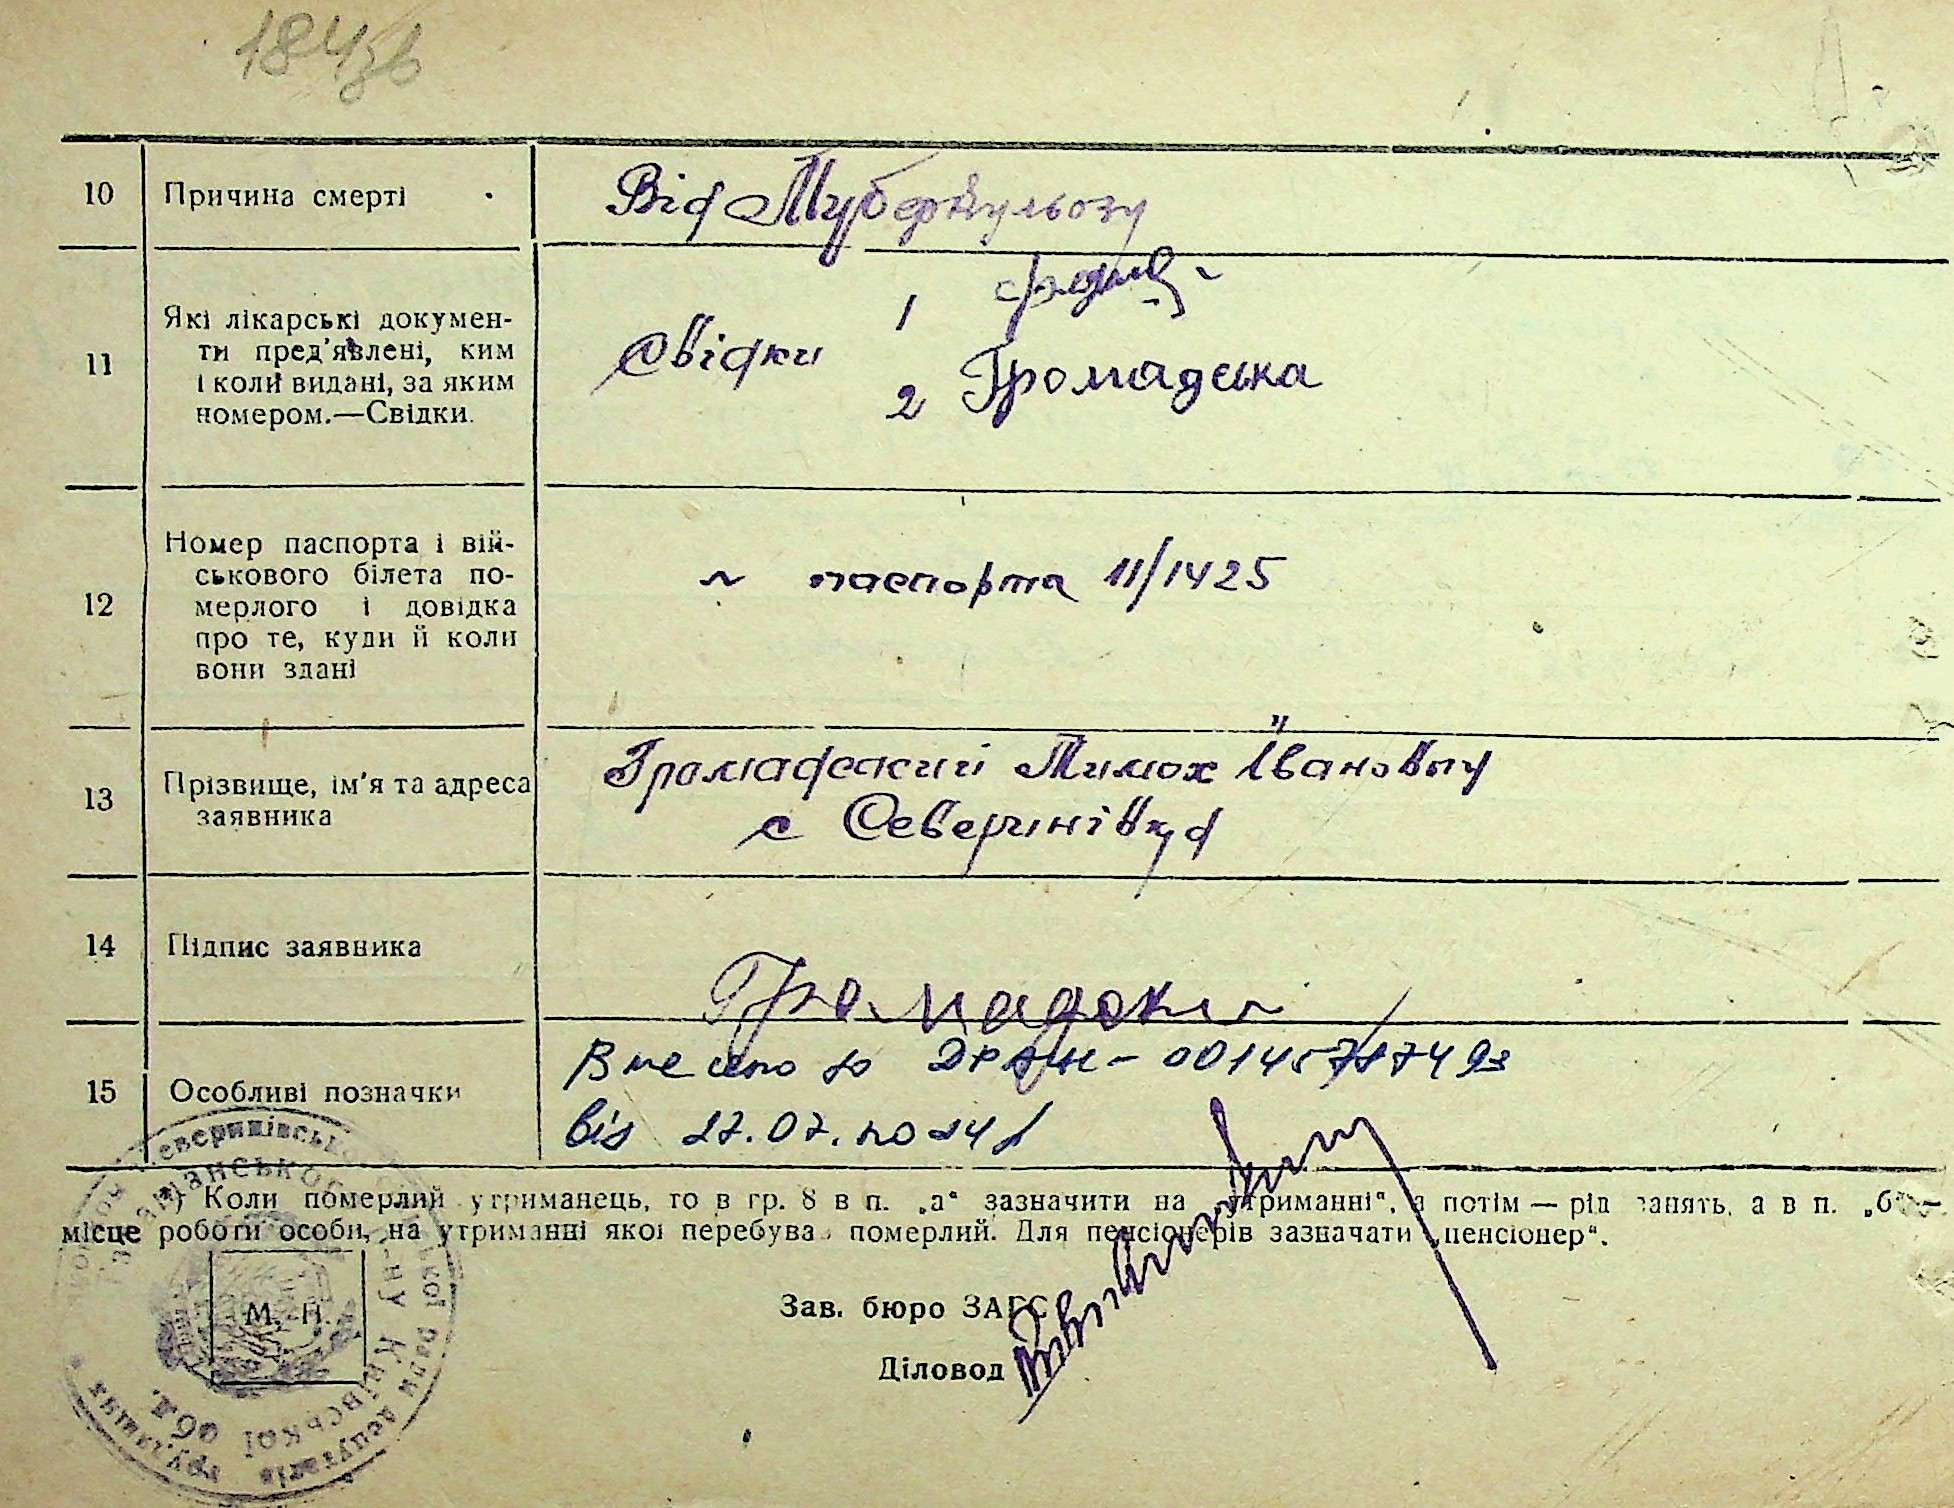 184зв
10 Причина смерті Від Туберкульозу
11 Які лікарські докумен-
ти пред'явлені, ким
і коли видані, за яким
номером.—Свідки.
Свідки 1
2 Громадська
12 Номер паспорта і вій-
ськового білета по-
мерлого і довідка
про те, куди й коли
вони здані
~ паспорта 11/1425
13 Прізвище, ім'я та адреса
заявника
Громадский Тимох Івановыч
с Северинівка
14 Підпис заявника
Громадски
15 Особливі позначки
Внесено до ДРАЦС - 00145787493
від 27.07.2024 р
*) Коли померлий утриманець, то в гр. 8 в п. „а“ зазначити на „утриманні“, а потім — рід занять, а в п. „б“ —
місце роботи особи, на утриманні якої перебував померлий. Для пенсіонерів зазначати „пенсіонер“.
М. П.
Зав. бюро ЗАГС
Діловод
Северинівської сільської ради депутатів трудящих
Таращанського р-ну Київської обл.